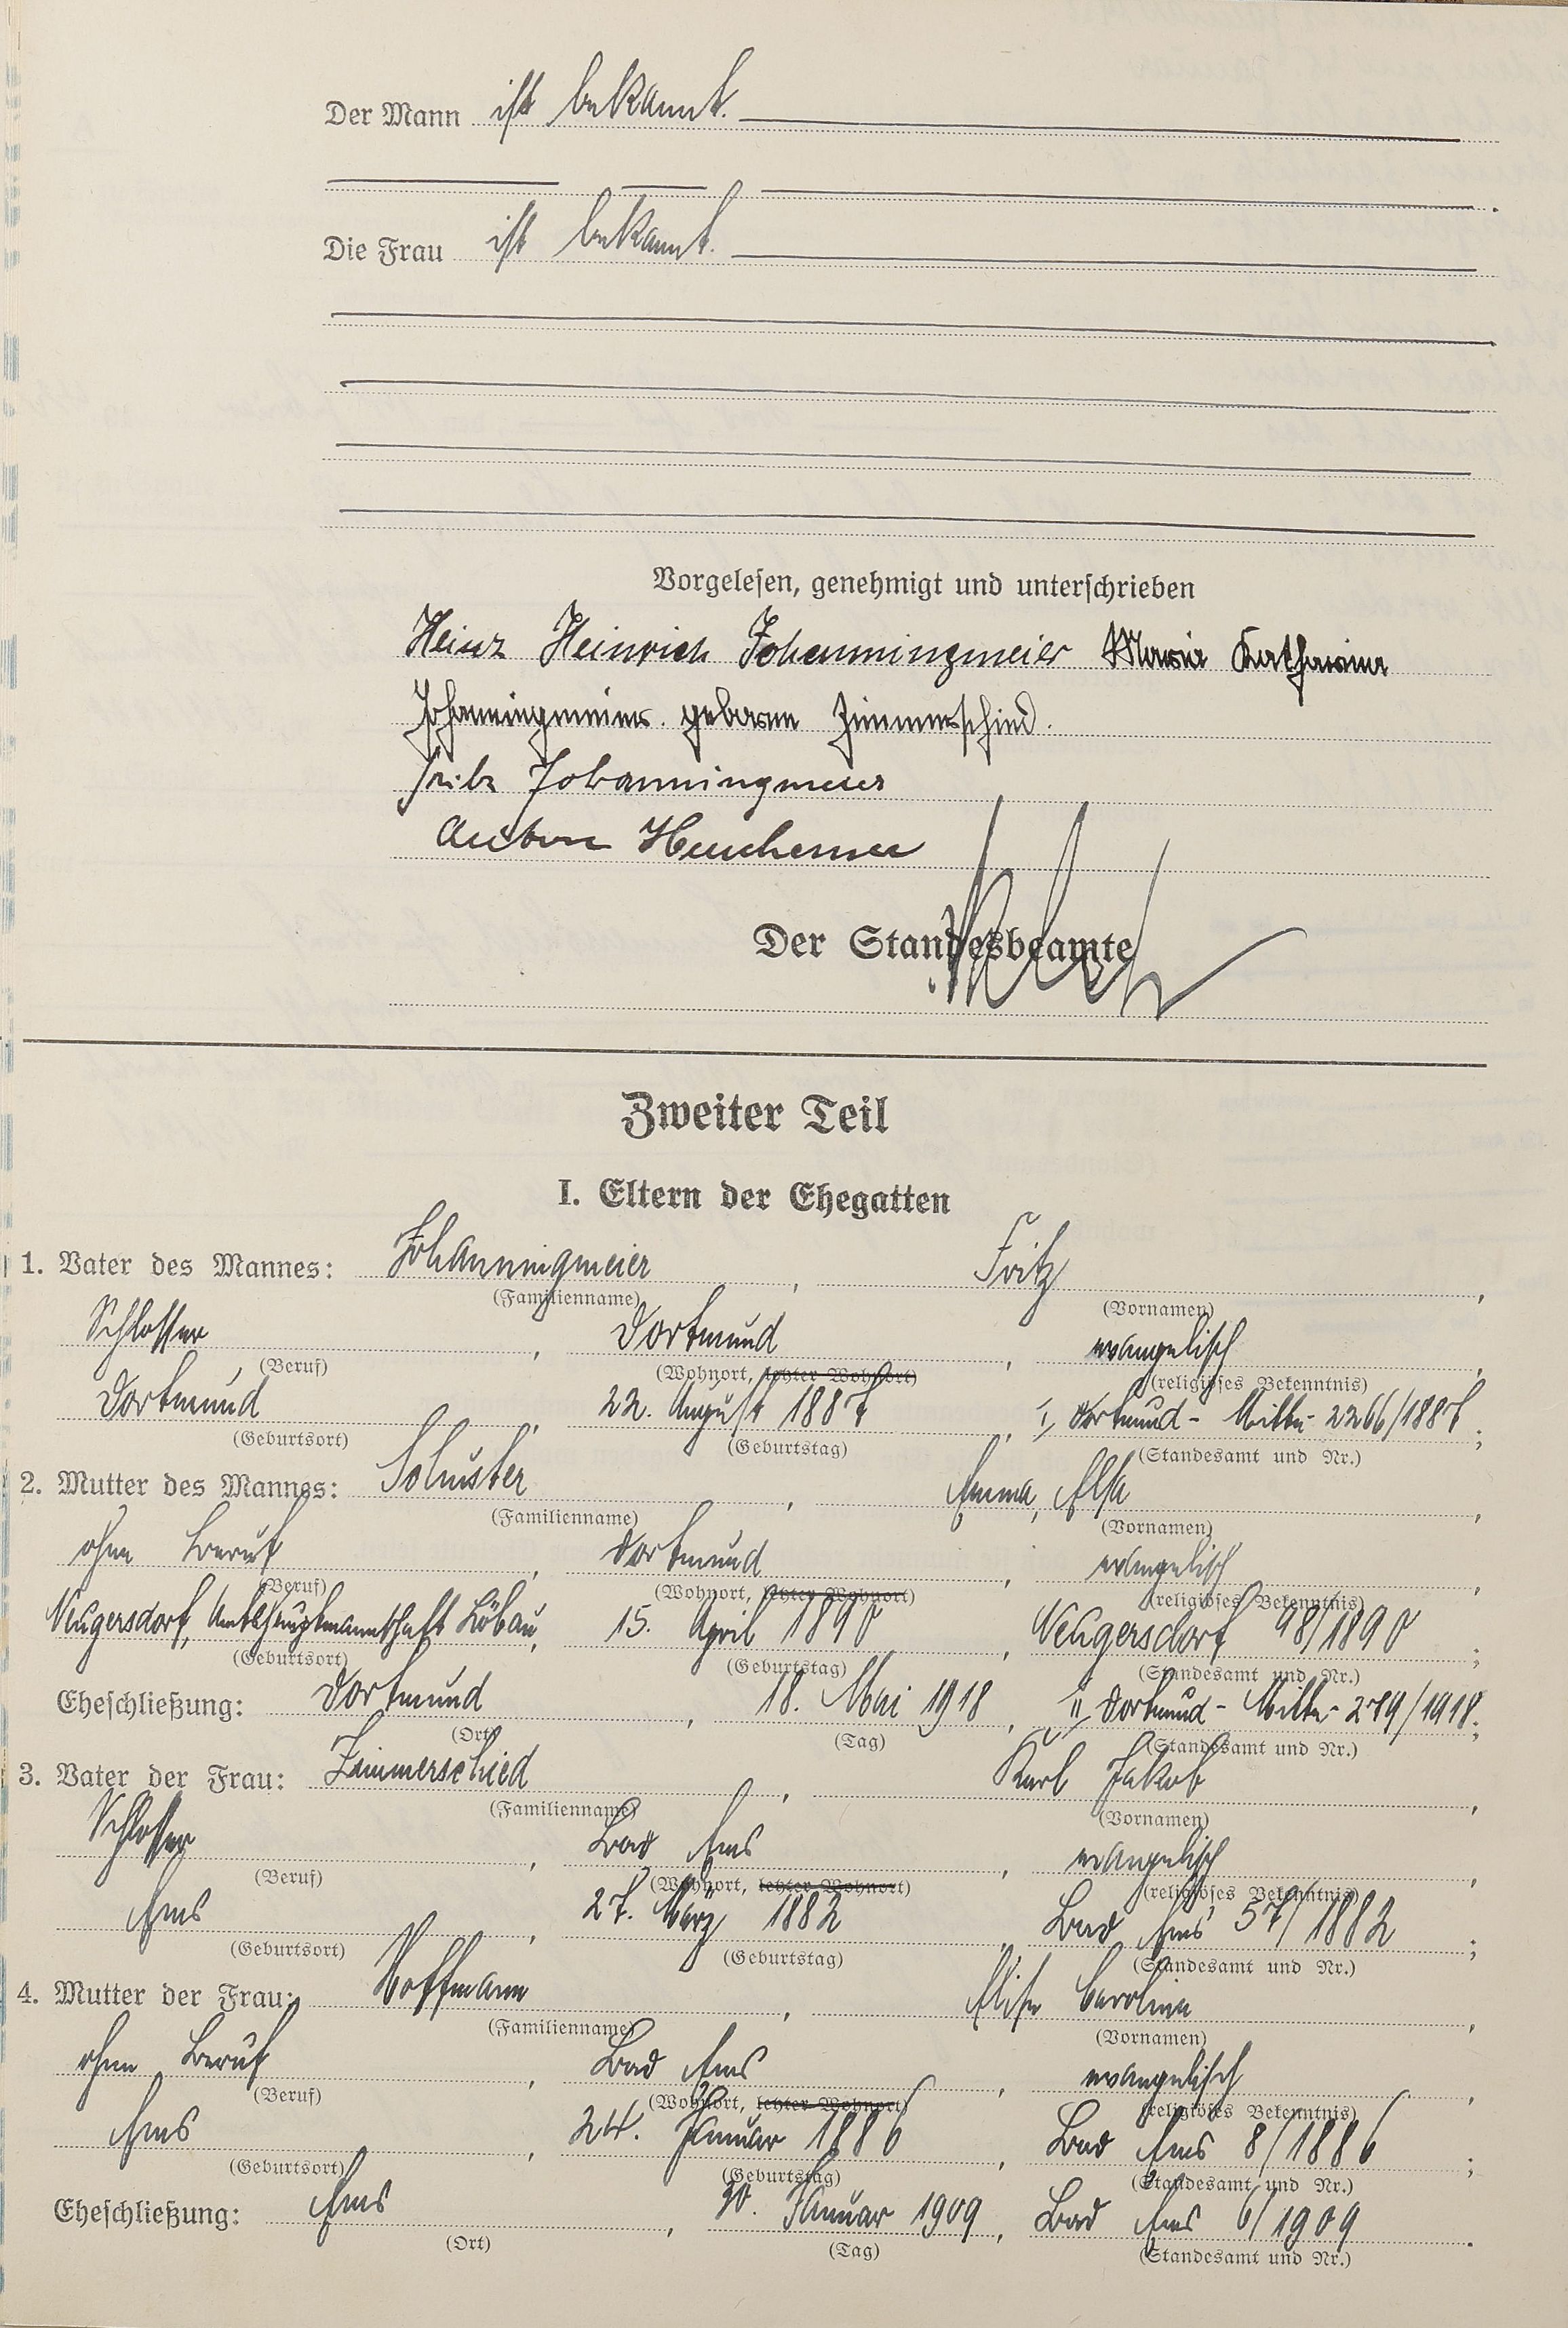 Der Mann ist bekannt.
Die Frau ist bekannt.
Vorgelesen, genehmigt und unterschrieben
Heinz Heinrich Johanningmeier Maria Katharina
Johanningmeier geborene Zimmerschied.
Fritz Johanningmeier
Anton
Der Standesbeamte
Zweiter Teil
I. Eltern der Ehegatten
1. Vater des Mannes: Johanningmeier, Fritz,
(Familienname) (Vornamen)
Schlosser, Dortmund, evangelisch,
(Beruf) (Wohnort, letzter Wohnort) (religiöses Bekenntnis)
Dortmund, 22. August 1887, I, Dortmund-Mitte- 2266/1887;
(Geburtsort) (Geburtstag) (Standesamt und Nr.)
2. Mutter des Mannes: Schuster, Emma, Elsa,
(Familienname) (Vornamen)
ohne Beruf, Dortmund, evangelisch,
(Beruf) (Wohnort, letzter Wohnort) (religiöses Bekenntnis)
Neugersdorf, Amtshauptmannschaft Löbau, 15. April 1890, Neugersdorf 98/1890;
(Geburtsort) (Geburtstag) (Standesamt und Nr.)
Eheschließung: Dortmund, 18. Mai 1918, II Dortmund-Mitte- 279/1918;
(Ort) (Tag) (Standesamt und Nr.)
3. Vater der Frau: Zimmerschied, Karl Jakob,
(Familienname) (Vornamen)
Schlosser, Bad Ems, evangelisch,
(Beruf) (Wohnort, letzter Wohnort) (religiöses Bekenntnis)
Ems, 27. März 1882, Bad Ems 57/1882;
(Geburtsort) (Geburtstag) (Standesamt und Nr.)
4. Mutter der Frau: Hoffmann, Elise Carolina,
(Familienname) (Vornamen)
ohne Beruf, Bad Ems, evangelisch,
(Beruf) (Wohnort, letzter Wohnort) (religiöses Bekenntnis)
Ems, 24. Januar 1886, Bad Ems 8/1886;
(Geburtsort) (Geburtstag) (Standesamt und Nr.)
Eheschließung: Ems, 30. Januar 1909, Bad Ems 6/1909.
(Ort) (Tag) (Standesamt und Nr.)